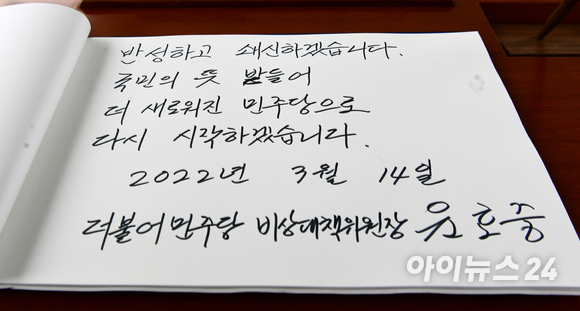 반성하고 쇄신하겠습니다.
국민의 뜻 받들어
더 새로워진 민주당으로
다시 시작하겠습니다.
2022년 3월 14일
더불어민주당 비상대책위원장 윤호중
아이뉴스24